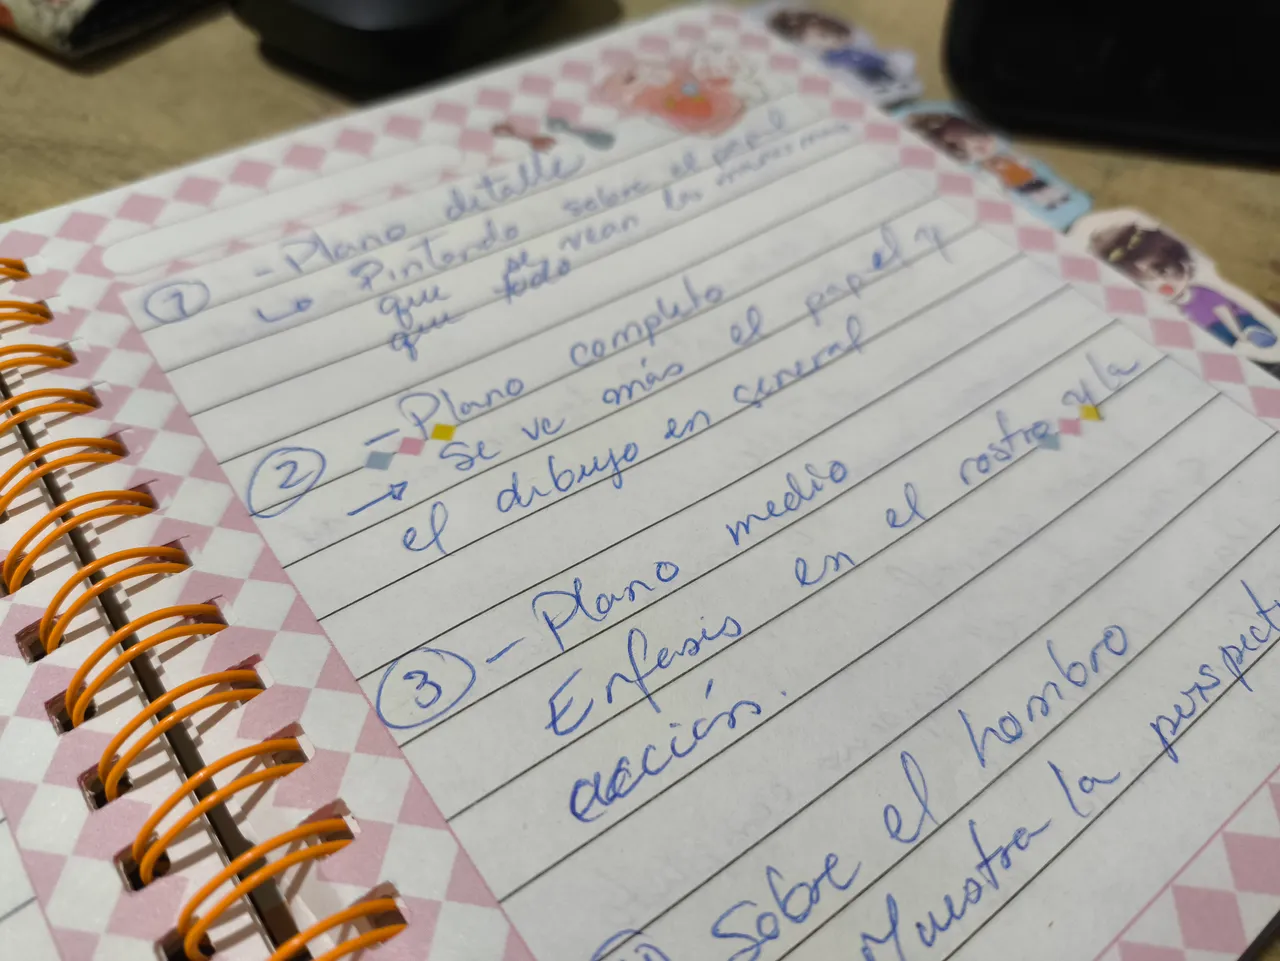 ① - Plano detalle
↳ Pintando sobre el papel
que se vean las manos
que todo
② - Plano completo
→ Se ve más el papel y
el dibujo en general
③ - Plano medio
Enfasis en el rostro y la
acción.
Sobre el hombro
Muestra la